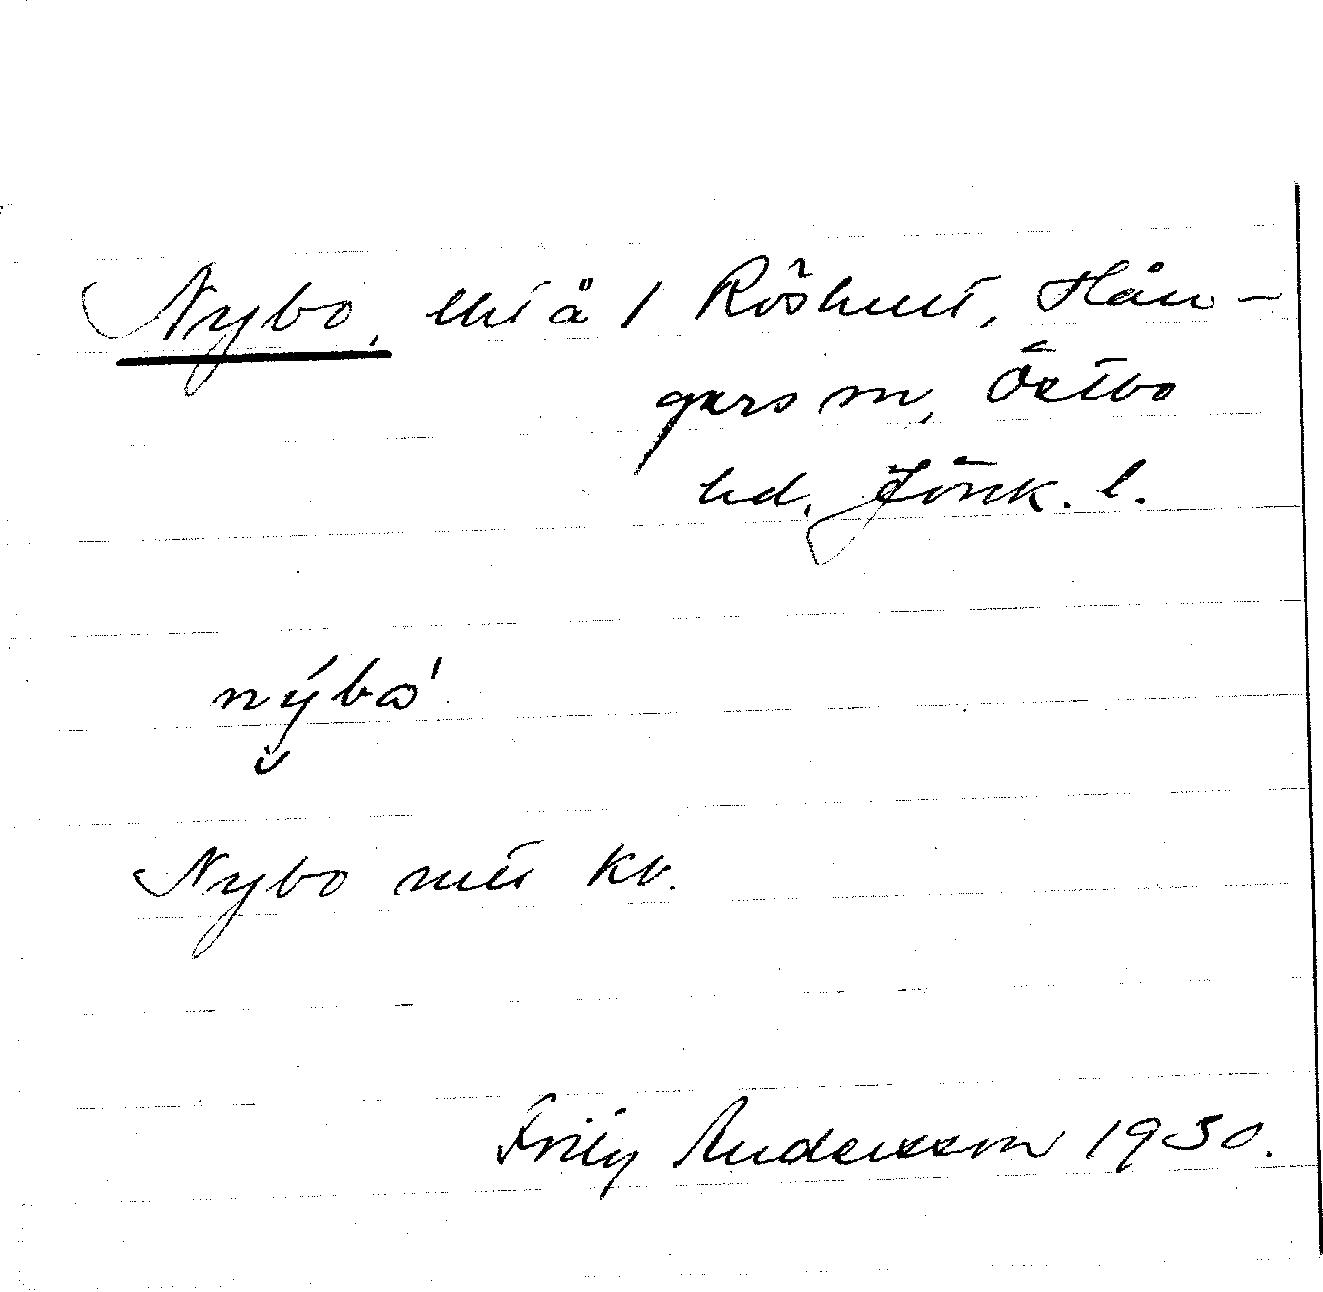 Nybo, lht å 1 Röshult, Hån-
gers sn, Östbo
hd, Jönk. l.
nýbo'
Nybo mitt kv.
Frity Andersson 1930.